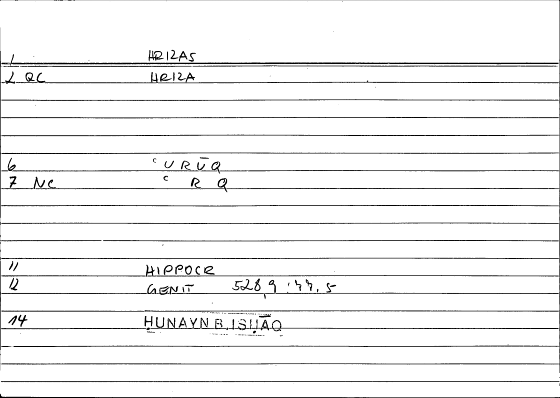 1 HRIZAS
2 QC HRIZA
6 ʿURŪQ
7 NC ʿ R Q
11 HIPPOCR
12 GENIT 528,9 : 44.5
14 ḤUNAYN B. ISḤĀQ